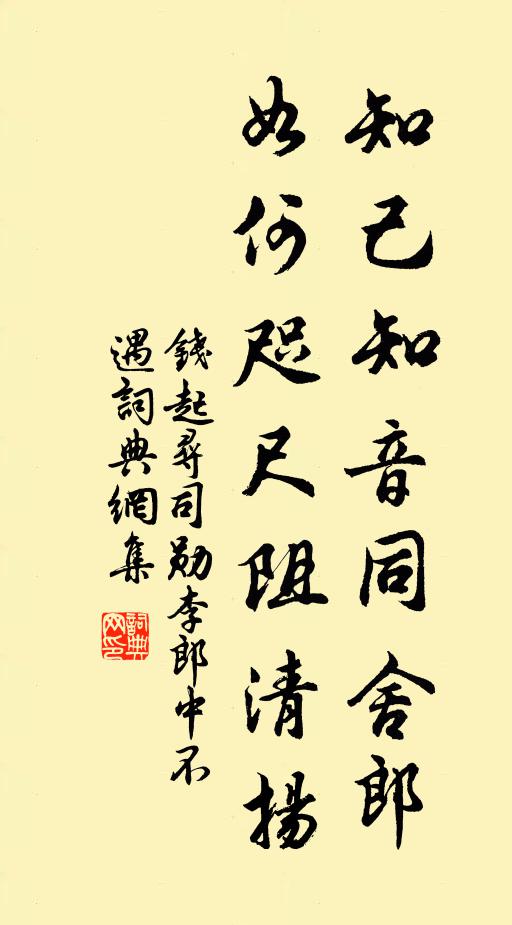 知己知音同舍郎
如何咫尺阻清揚
錢起尋司勛李郎中不
遇詞典網集
詞典
网印